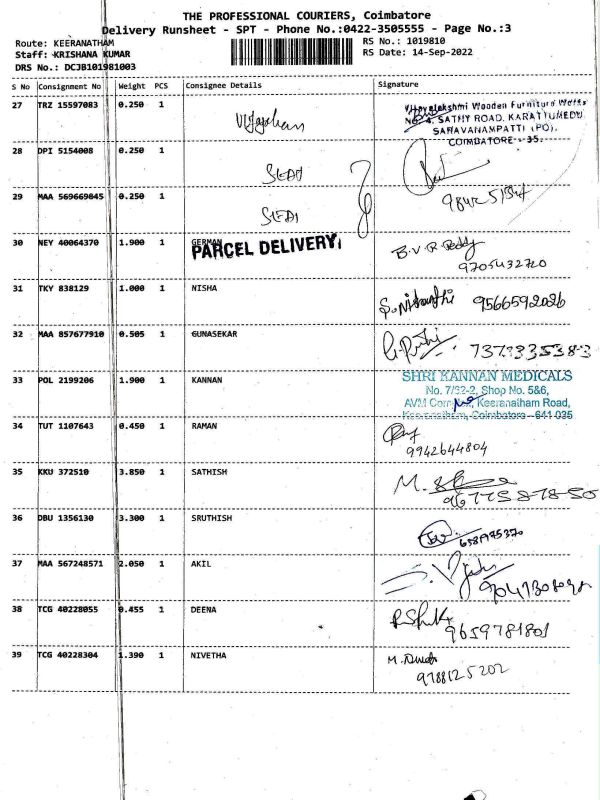 THE PROFESSIONAL COURIERS, Coimbatore
Delivery Runsheet - SPT - Phone No.:0422-3505555 - Page No.:3
Route: KEERANATHAM
RS No.: 1019810
Staff: KRISHANA KUMAR
RS Date: 14-Sep-2022
DRS No.: DCJB101981003
S No Consignment No Weight PCS Consignee Details Signature
27 TRZ 15597083 0.250 1
Vijayalakshmi Wooden Furniture Works
No. 4, SATHY ROAD, KARATTUMEDU
SARAVANAMPATTI (PO),
COIMBATORE - 35.
28 DPI 5154008 0.250 1
29 MAA 569669845 0.250 1
30 NEY 40064370 1.900 1 GERMAN
PARCEL DELIVERY
B.V.R. Reddy
9705432720
31 TKY 838129 1.000 1 NISHA
9566592026
32 MAA 857677910 0.505 1 GUNASEKAR
7373335383
33 POL 2199206 1.900 1 KANNAN
SHRI KANNAN MEDICALS
No. 7/32-2, Shop No. 5&6,
AVM Complex, Keeranatham Road,
Keeranatham, Coimbatore - 641 035
34 TUT 1107643 0.450 1 RAMAN
9942644804
35 KKU 372510 3.850 1 SATHISH
36 DBU 1356130 3.300 1 SRUTHISH
37 MAA 567248571 2.050 1 AKIL
38 TCG 40228055 0.455 1 DEENA
9659781801
39 TCG 40228304 1.390 1 NIVETHA
9788125202